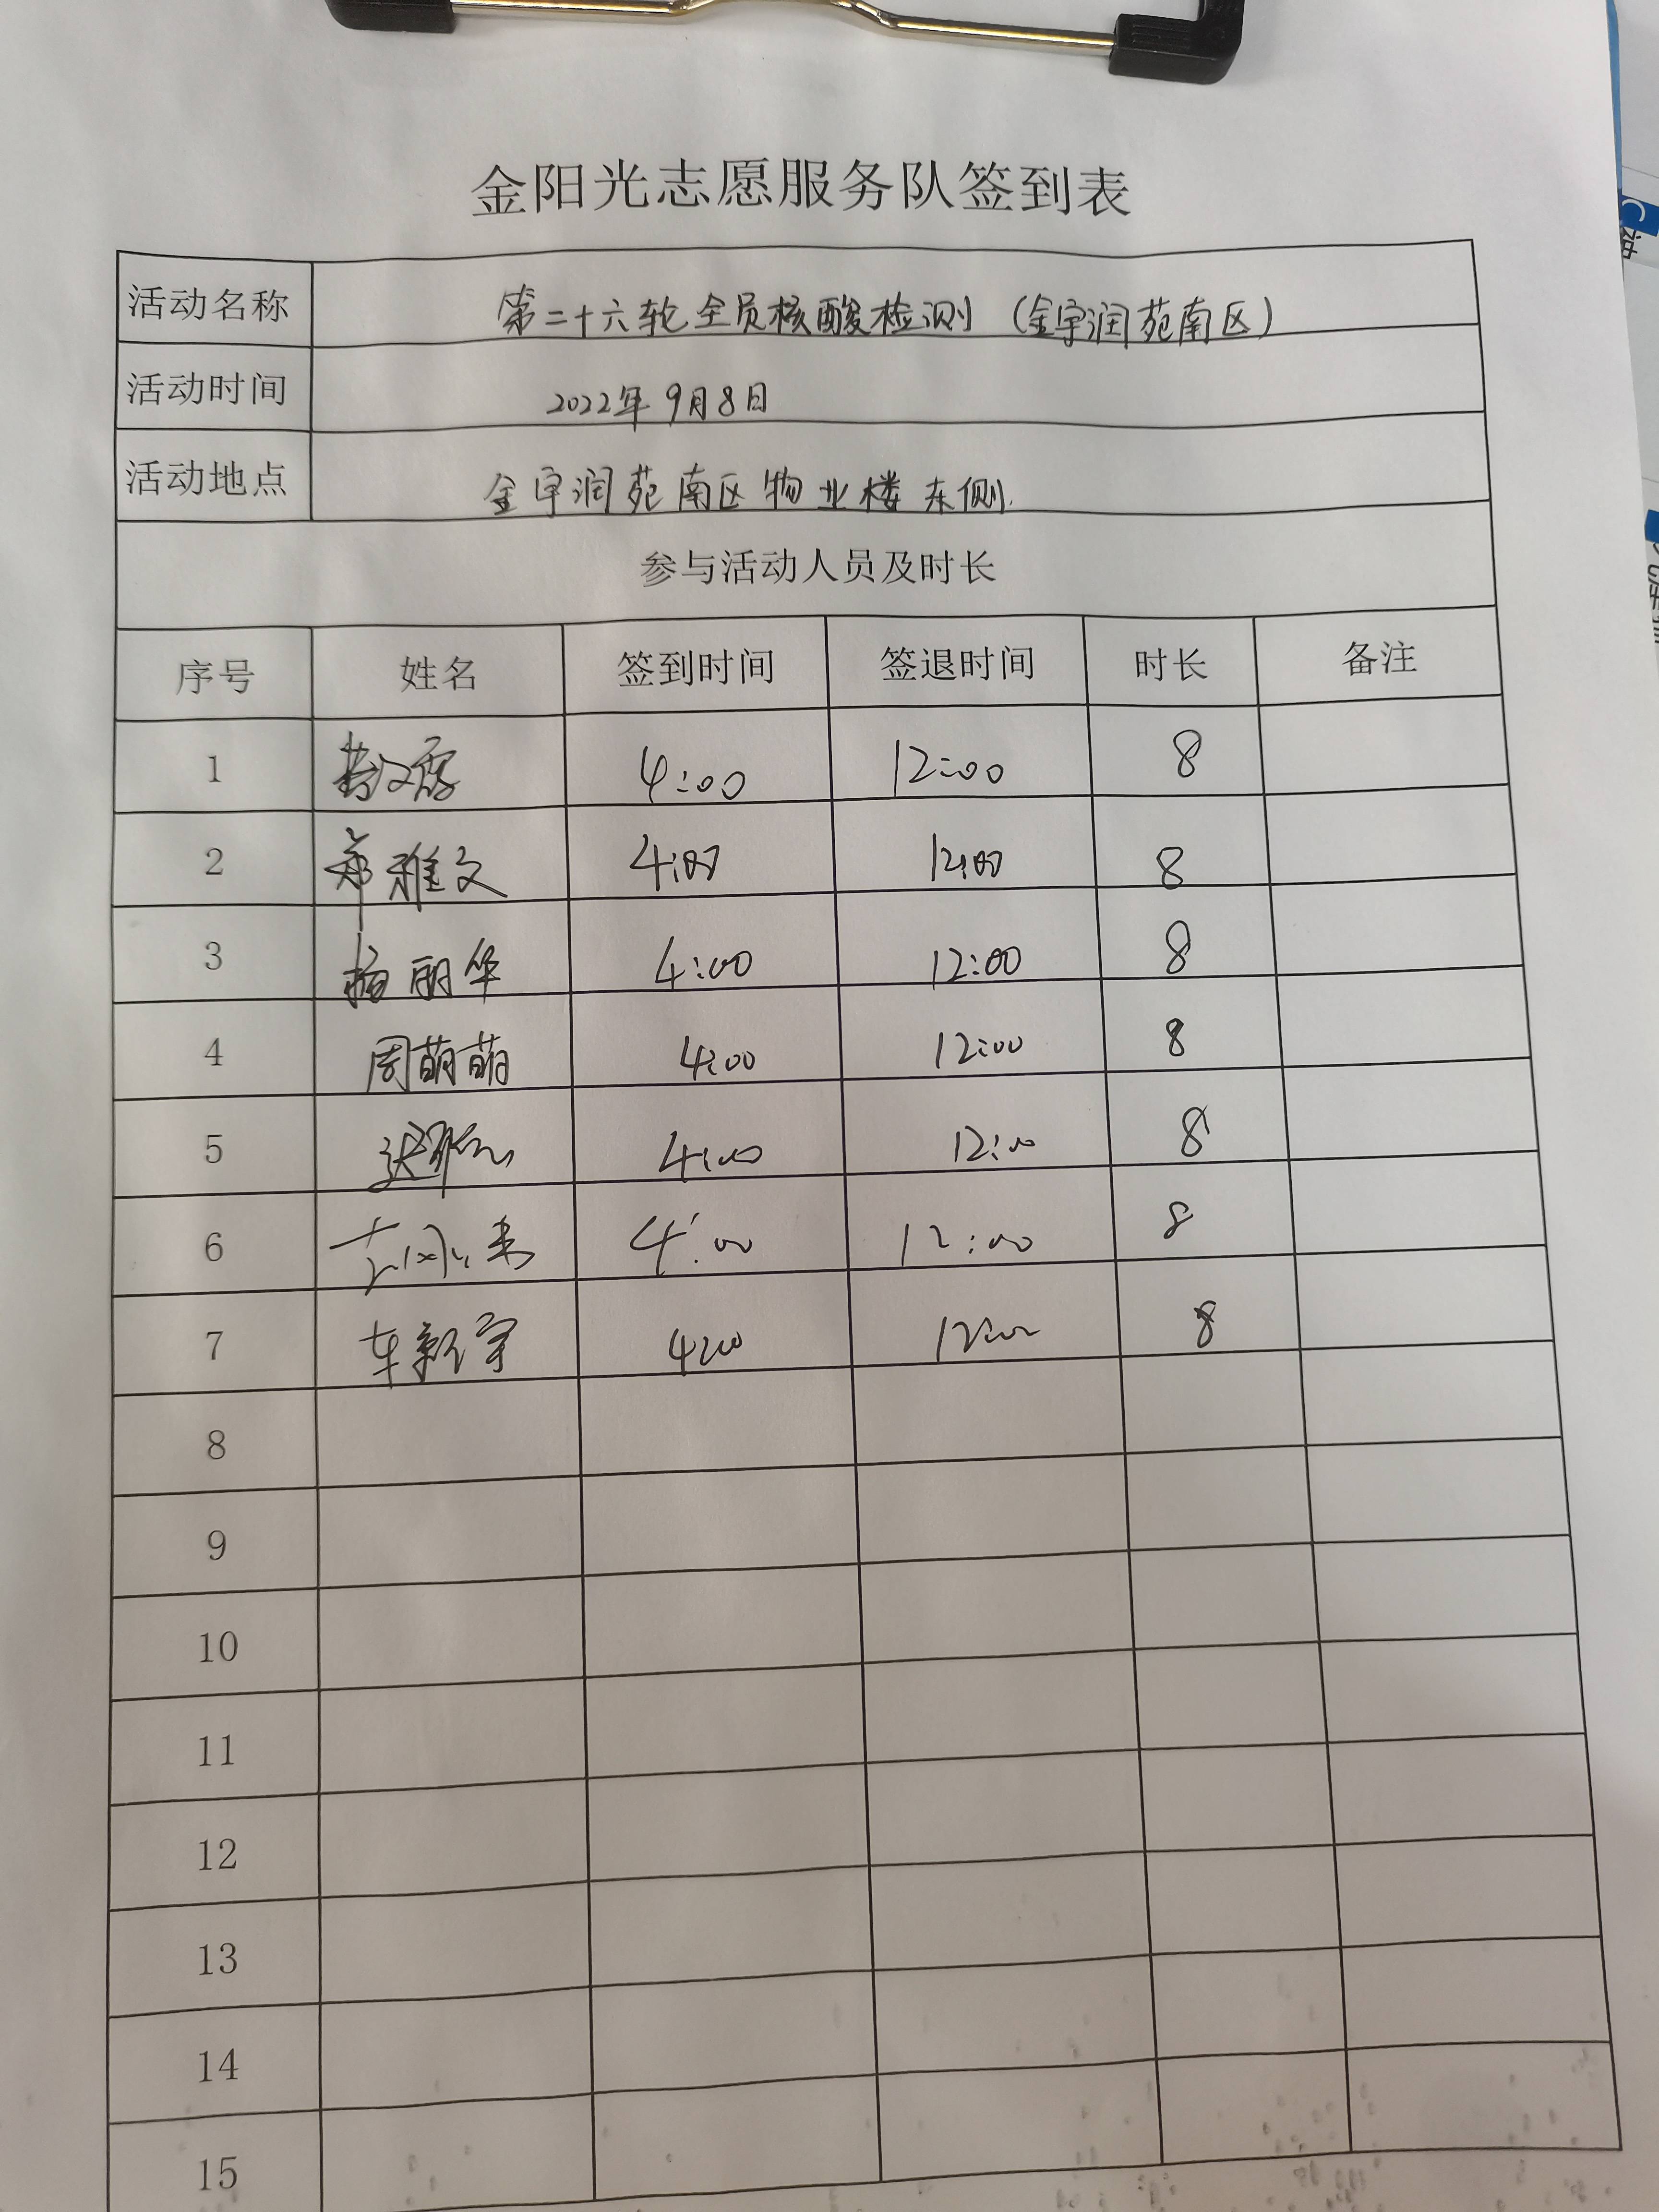 金阳光志愿服务队签到表
活动名称 第二十六轮全员核酸检测（金宇润苑南区）
活动时间 2022年9月8日
活动地点 金宇润苑南区物业楼东侧.
参与活动人员及时长
序号 姓名 签到时间 签退时间 时长 备注
1 4:00 12:00 8
2 郑雅文 4:00 12:00 8
3 杨丽华 4:00 12:00 8
4 周萌萌 4:00 12:00 8
5 4:00 12:00 8
6 4:00 12:00 8
7 车新宇 4:00 12:00 8
8
9
10
11
12
13
14
15